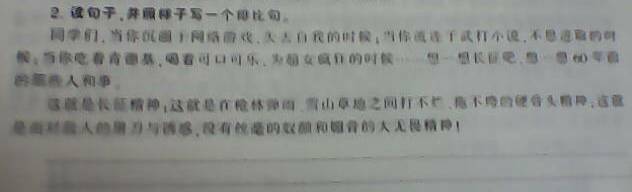 2. 读句子,并照样子写一个排比句。
同学们,当你沉湎于网络游戏、失去自我的时候;当你流连于武打小说,不思进取的时
候;当你吃着肯德基,喝着可口可乐,为超女疯狂的时候……想一想长征吧,想一想60年前
的那些人和事。
这就是长征精神;这就是在枪林弹雨、雪山草地之间打不烂、拖不垮的硬骨头精神;这就
是面对敌人的屠刀与诱惑,没有丝毫的奴颜和媚骨的大无畏精神!